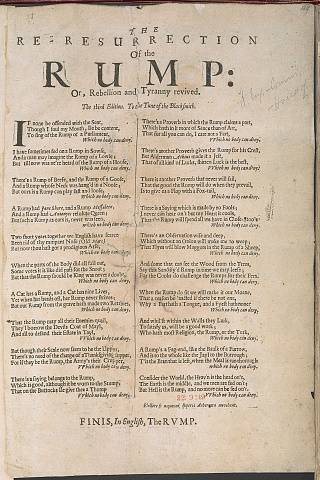 THE
RE-RESURRECTION
Of the
RUMP:
Or, Rebellion and Tyranny revived.
The third Edition. To the Tune of the Blacksmith.
IF none be offended with the Scent,
Though I foul my Mouth, Ile be content,
To sing of the Rump of a Parliament,
Which no body can deny.
I have sometimes fed on a Rump in Sowse,
And a man may imagine the Rump of a Lowse;
But till now was ne're heard of the Rump of a House,
Which no body can deny.
There's a Rump of Beefe, and the Rump of a Goose,
And a Rump whose Neck was hang'd in a Noose;
But ours is a Rump can play fast and loose,
Which no body can deny.
A Rump had Jane Shore, and a Rump
And a Rump had of Queen;
But such a Rump as ours is, never was seen,
Which no body can deny.
Two short years together we English have scarce
Been rid of thy rampant Nose
But now thou hast got a prodigious Arse,
Which no body can deny.
When the parts of the Body did all fall out,
Some votes it is like did pass for the Snout;
But that the Rump should be King was never a doubt,
Which no body can deny.
A Cat has a Rump, and a Cat has nine Lives,
Yet when her heads off, her Rump never strives;
But our Rump from the grave hath made two Retrives,
Which no body can deny.
That the Rump may all their Enemies quail,
They borrow the Devils Coat of Mayl,
And all to defend their Estate in Tayl,
Which no body can deny.
But though their Scale now seem to be the Upper,
There's no need of the charge of a Thanksgiving supper,
For if they be the Rump, the Army's their Crupper,
Which no body can deny.
There is a saying belongs to the Rump,
Which is good, although it be worn to the Stump;
That on the Buttocks Ile give thee a Thump
Which no body can deny.
There's a Proverb in which the Rump claims a part,
Which hath in it more of Sence than of Art,
That for all you can do, I care not a Fart,
Which no body can deny.
There's another Proverb gives the Rump for his Crest,
But Alderman made it a Jest,
That of all kind of Lucks, shitten Luck is the best,
Which no body can deny.
There's another Proverb that never will fail,
That the good the Rump will do when they prevail,
Is to give us a Flap with a Fox-tail,
Which no body can deny.
There is a Saying which is made by no Fools;
I never can hear on't but my Heart it cools,
That the Rump will spend all we have in Close-stools
Which no body can deny.
There's an Observation wise and deep,
Which without an Onion will make me to weep;
That Flyes will blow Maggots in the Rump of a Sheep,
Which no body can deny.
And some that can see the Wood from the Trees,
Say this Sanctified Rump in time we may leese;
For the Cooks do challenge the Rumps for their Fees,
Which no body can deny.
When the Rump do sit we will make it our Moane,
That a reason be 'nacted if there be not one,
Why a Fart hath a Tongue, and a Fyest hath none
Which no body can deny.
And whil'st within the Walls they Lurk,
To satisfy us, will be a good work,
Who hath most Religion, the Rump, or the Turk,
Which no body can deny.
A Rump's a Fag-end, like the Baulk of a Furrow,
And is to the whole like the Jayl to the Burrough;
'Tis the Bran that is left, when the Meal is run thorough
Which no body can deny.
Consider the World, the Heav'n is the head on't,
The Earth is the middle, and we men are fed on't;
But Hell is the Rump, and no more can be sed on't.
Which no body can deny.
Flectere si nequeunt Superos Acheronta movebunt.
FINIS, In English, The RUMP.